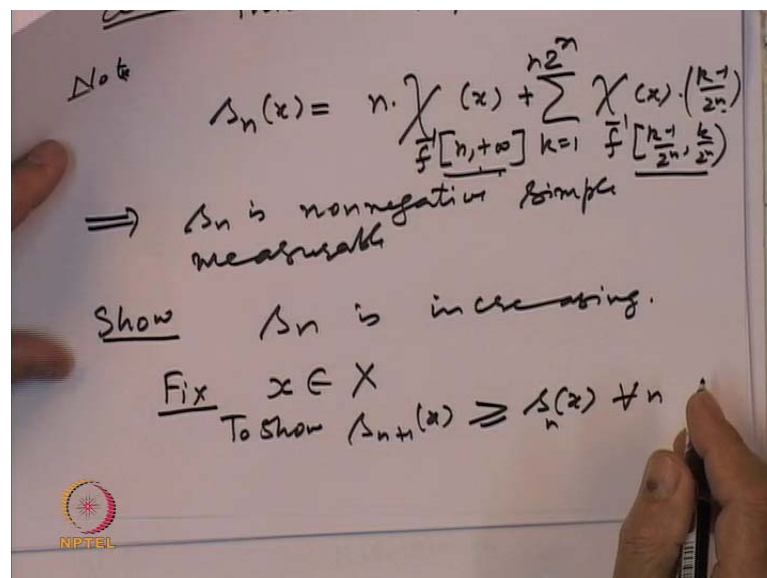 Note
s_n(x) = n. χ_{f^{-1}[n, +∞]} (x) + ∑_{k=1}^{n2^n} χ_{f^{-1}[\frac{k-1}{2^n}, \frac{k}{2^n})} (x) . (\frac{k-1}{2^n})
⟹ s_n is nonnegative simple
measurable
Show s_n is increasing.
Fix x ∈ X
To show s_{n+1}(x) ≥ s_n(x) ∀ n
NPTEL